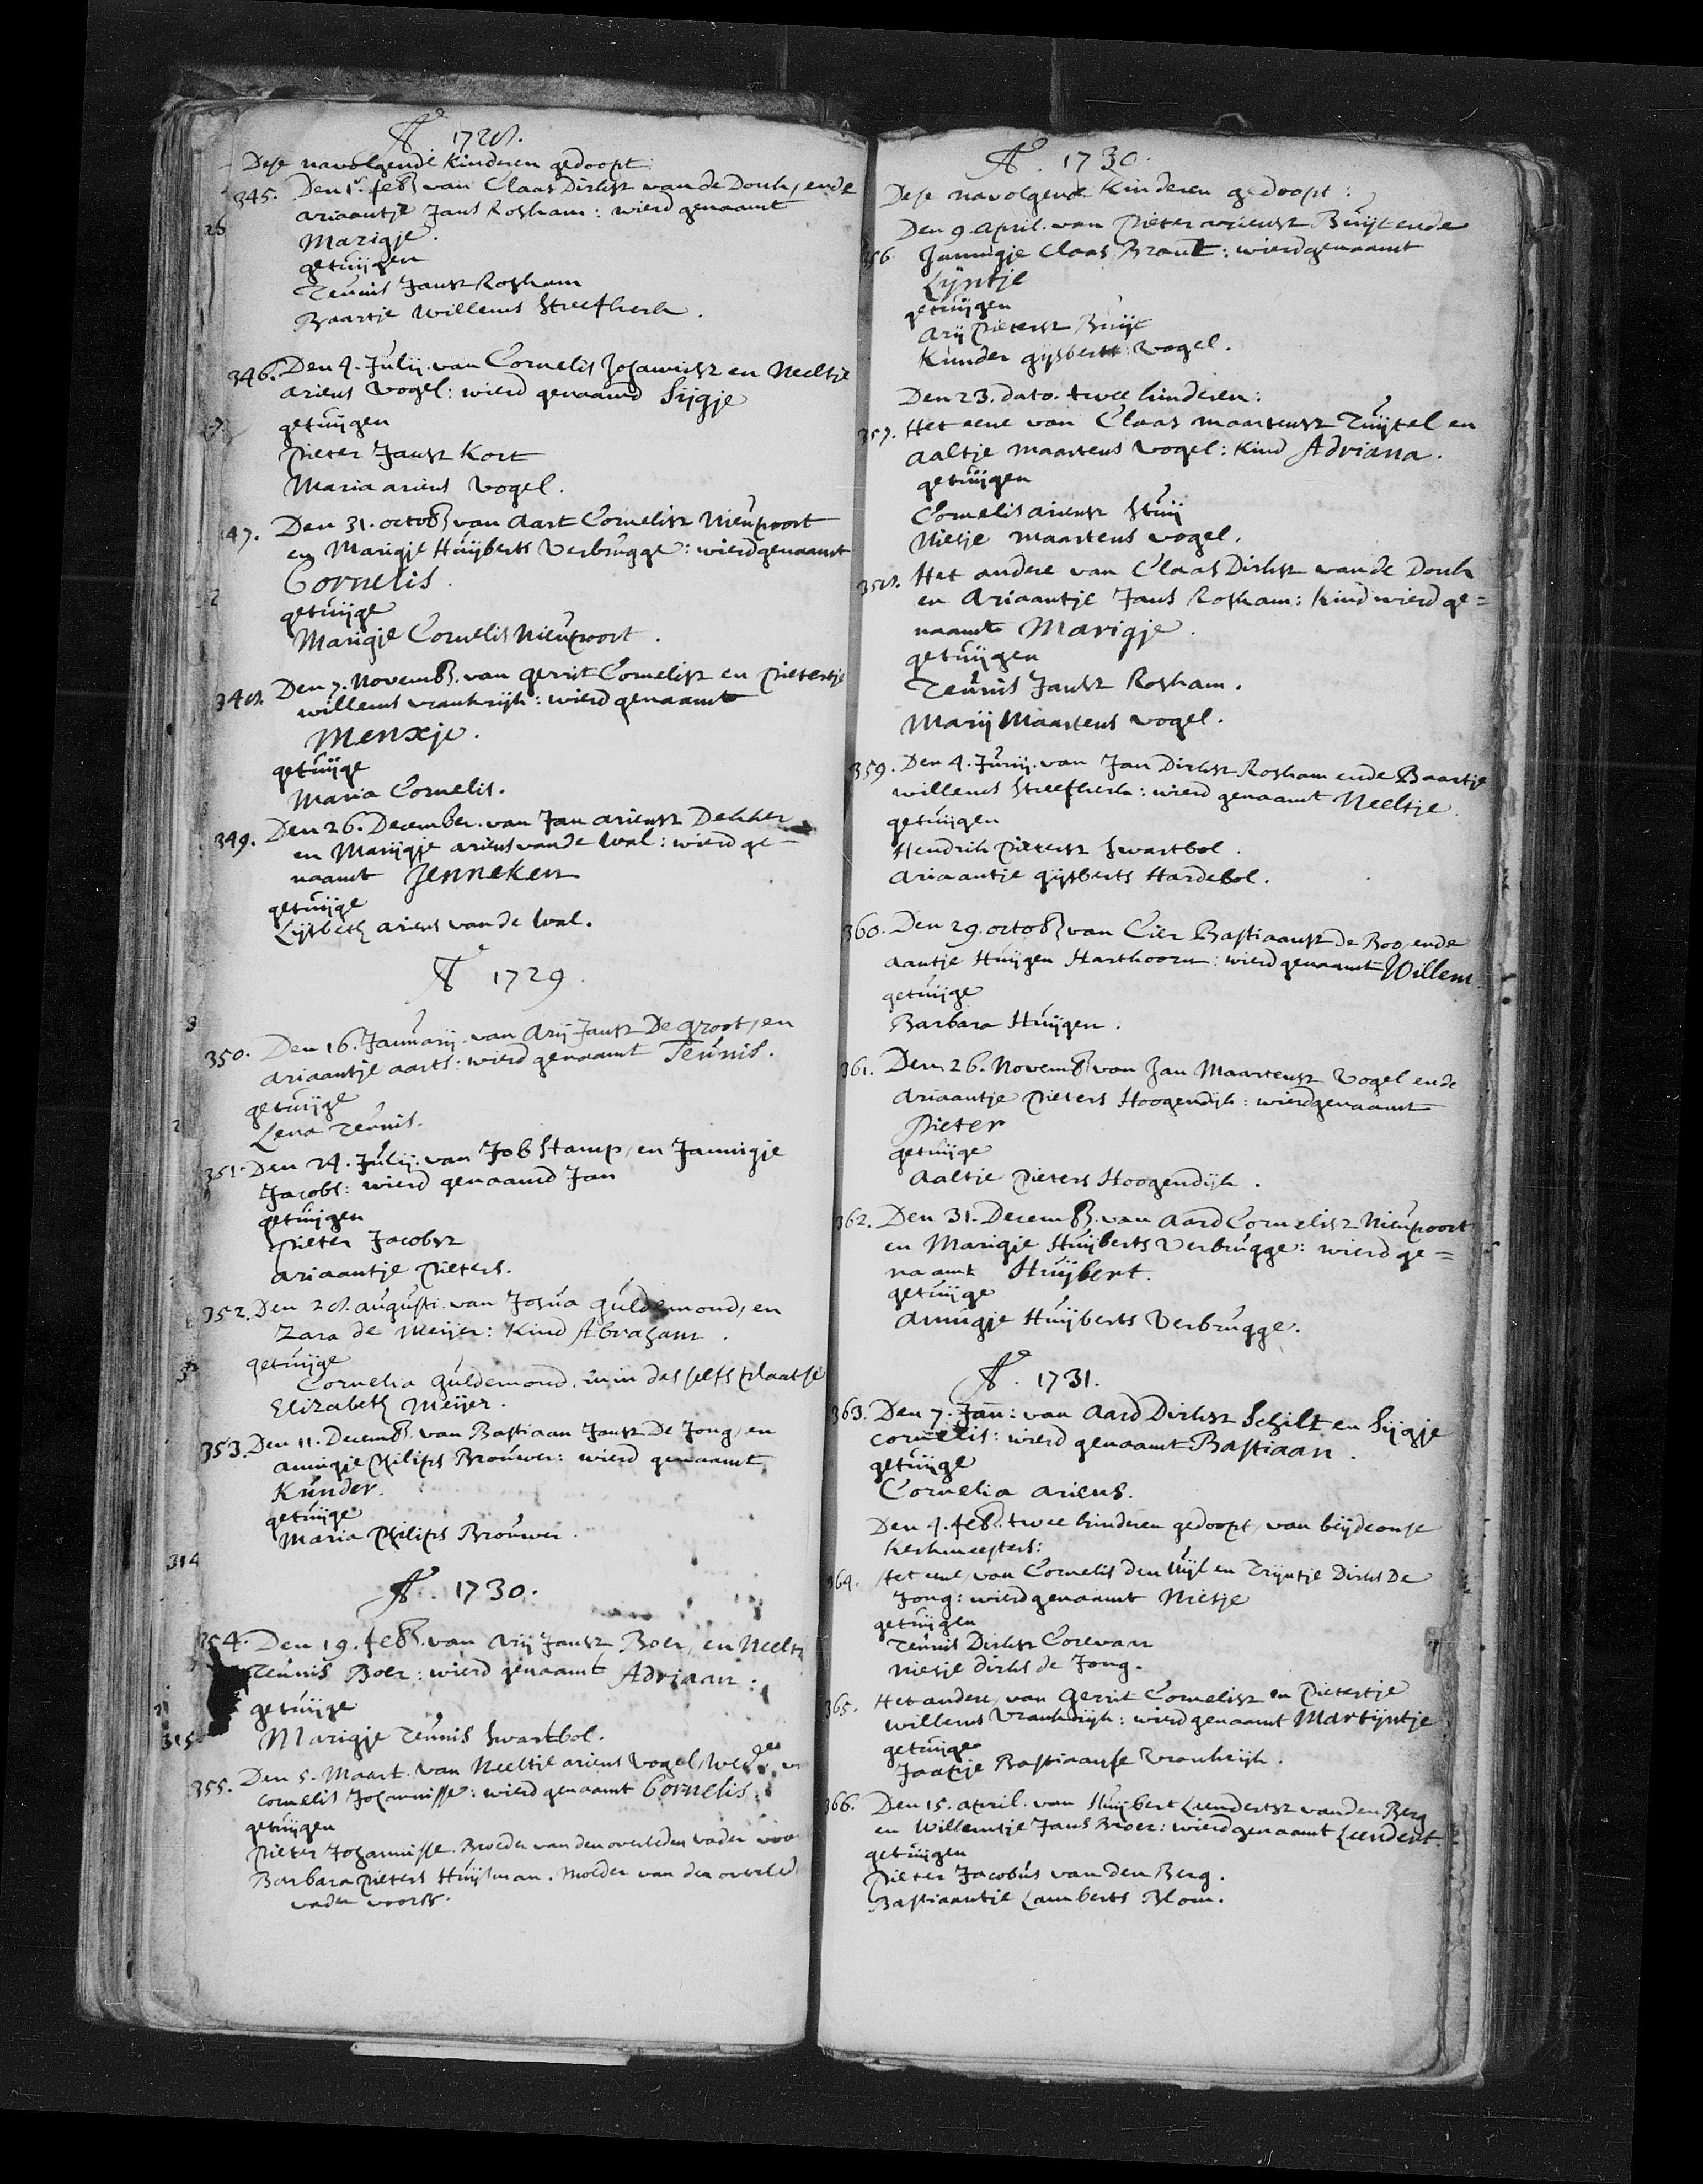 Ao 1728.
Dese navolgende kinderen gedoopt:
345. Den 1e. feb: van Claas Dirksz van de Donk, ende
ariaantje Jans Rosham: wierd genaamt
Marigje.
getuijgen
Teunis Jansz Rosham
Baartje Willems Streefkerk.
346. Den 4. Julij. van Cornelis Johannisz en Neeltje
ariens Vogel: wierd genaamd Sijgje
getuijgen
Pieter Jansz Kort
Maria ariens Vogel.
347. Den 31. octob: van Aart Cornelisz Nieupoort
en Marigje Huijberts Verbrugge: wierd genaamt
Cornelis.
getuijge
Marigje Cornelis Nieupoort.
348. Den 7. Novemb. van gerrit Cornelisz en Pietertje
willems vrankrijk: wierd genaamt
Menxje.
getuijge
Maria Cornelis.
349. Den 26. December. van Jan ariensz Dekker
en Marijgje ariens van de Wal: wierd ge-
naamt Jenneken
getuijge
Lijsbeth ariens van de Wal.
Ao 1729.
350. Den 16. Januarij. van Arij Jansz De groot, en
ariaantje aarts: wierd genaamt Teunis.
getuijge
Lena Teunis.
351. Den 24. Julij. van Job Stamp, en Jannigje
Jacobs: wierd genaamd Jan
getuijgen
Pieter Jacobsz
Ariaantje Pieters.
352. Den 28. augusti. van Josua guldemond, en
Zara de Meijer: Kind Abraham.
getuijge
Cornelia guldemond. in des selfs plaatse
Elizabeth Meijer.
353. Den 11. Decemb. van Bastiaan Jansz De Jong, en
annigje Philips Brouwer: wierd genaamt
Kunder.
getuijge
Maria Philips Brouwer.
314
Ao. 1730.
354. Den 19. feb. van Arij Jansz Boer, en Neeltj
Teunis Boer: wierd genaamt Adriaan:
getuijge
315 Marigje Teunis Swartbol.
355. Den 5. Maart. van Neeltje ariens Vogel,
cornelis Johannisse: wierd genaamt Cornelis.
getuijgen
Pieter Johannisse. Broeder van den overleden vader voor
Barbara Pieters Huijsman. Moeder van den overled
vader voors.
Ao. 1730.
Dese navolgende Kinderen gedoopt:
Den 9. April. van Pieter ariensz Buijt ende
356 Jannigje Claas Brant: wierd genaamt
Lijntje
getuijgen
Arij Pietersz Buijt
Kunder gijsberts Vogel.
Den 23. dato. twee kinderen:
357. Het eene van Claas maartensz Tuijtel en
Aaltje Maartens Vogel: Kind Adriana.
getuijgen
Cornelis ariensz Stuij
Nietje maartens vogel.
358. Het andere van Claas Dirksz van de Donk
en Ariaantje Jans Rosham: Kind wierd ge=
naamt Marigje.
getuijgen
Teunis Jansz Rosham.
Marij Maartens vogel.
359. Den 4. Junij. van Jan Dirksz Rosham ende Baartje
willems Streefkerk: wierd genaamt Neeltje.
getuijgen
Hendrik Pietersz Swartbol.
Ariaantje gijsberts Hardebol.
360. Den 29. octob: van Cier Bastiaansz de Boo, ende
aantje Huijgen Harthoorn: wierd genaamt Willem.
getuijge
Barbara Huijgen.
361. Den 26. Novemb. van Jan Maartensz Vogel ende
Ariaantje Pieters Hoogendijk: wierd genaamt
Pieter
getuijge
Aaltje Pieters Hoogendijk.
362. Den 31. Decemb. van Aard Cornelisz Nieupoort
en Marigje Huijberts Verbrugge: wierd ge=
naamt Huijbert.
getuijge
Annigje Huijberts Verbrugge.
Ao. 1731.
363. Den 7. Jan: van Aard Dirksz Schilt en Sijgje
cornelis: wierd genaamt Bastiaan.
getuijge
Cornelia ariens.
Den 4. feb. twee kinderen gedoopt, van beijde onse
kerkmeesters:
364. Het eene, van Cornelis den Uijl en Trijntje Dirks De
Jong: wierd genaamt Nietje
getuijgen
Teunis Dirksz Corevaar
Nietje dirks de Jong.
365. Het andere, van Gerrit Cornelisz en Pietertje
willems Vrankrijk: wierd genaamt Martijntje
getuijge
Jaapje Bastiaanse Vrankrijk.
366. Den 15. April. van Huijbert Leendertsz van den Berg
en Willemtje Jans Broer: wierd genaamt Leendert.
getuijgen
Pieter Jacobus van den Berg.
Bastiaantje Lamberts Blom.